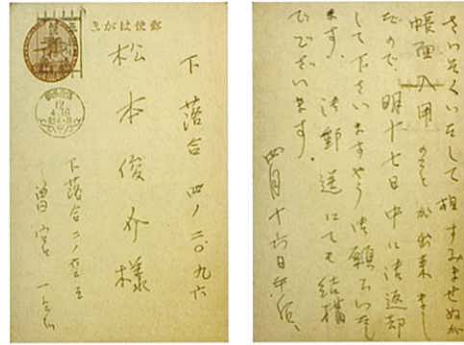 郵便はがき
下落合 四ノ二〇九六
松本俊介様
下落合二ノ
曽宮一念
12
4.16
さいそくいたして相すみませぬが
帳面入用のことが出来まし
たので明十七日中に御返却
して下さいますやう御願いいたし
ます。御郵送にても結構
でございます。
四月十六日午后